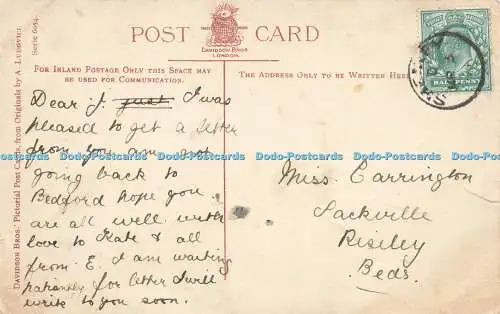 POST CARD
DAVIDSON BROS.
LONDON.
FOR INLAND POSTAGE ONLY THIS SPACE MAY
BE USED FOR COMMUNICATION.
THE ADDRESS ONLY TO BE WRITTEN HERE
HALFPENNY
Dear J. just I was
pleased to get a letter
from you am not
going back to
Bedford hope you
are all well with
love to Kate & all
from E. I am waiting
patiently for letter I will
write to you soon.
Miss Carrington
Sackville
Riseley
Beds.
DAVIDSON BROS.' Pictorial Post Cards, from Originals by A. LUDOVICI. Serie 6054.
Dodo-Postcards Dodo-Postcards Dodo-Postcards Dodo-Postcards